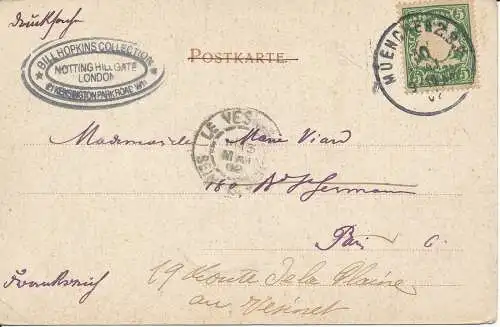 Drucksache
BILL HOPKINS COLLECTION
NOTTING HILL GATE
LONDON
KENSINGTON PARK ROAD W11
POSTKARTE.
MUENCHEN 2
5 5
Mademoiselle Marie Viard
LE VESINET
MAI
02
SEINE
160 Bd St Germain
Paris 6.
Frankreich
19 Route de la Plaine
au Vésinet